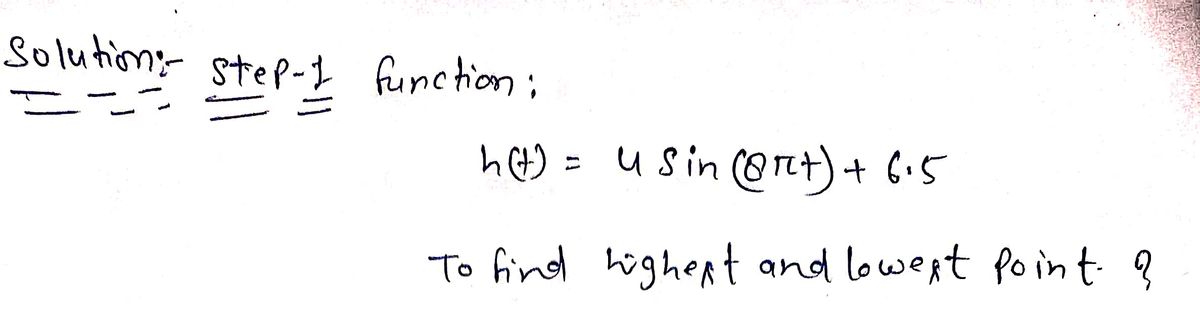 Solution:- Step-1 function:
h(t) = 4 sin(8πt) + 6.5
To find highest and lowest point. ?